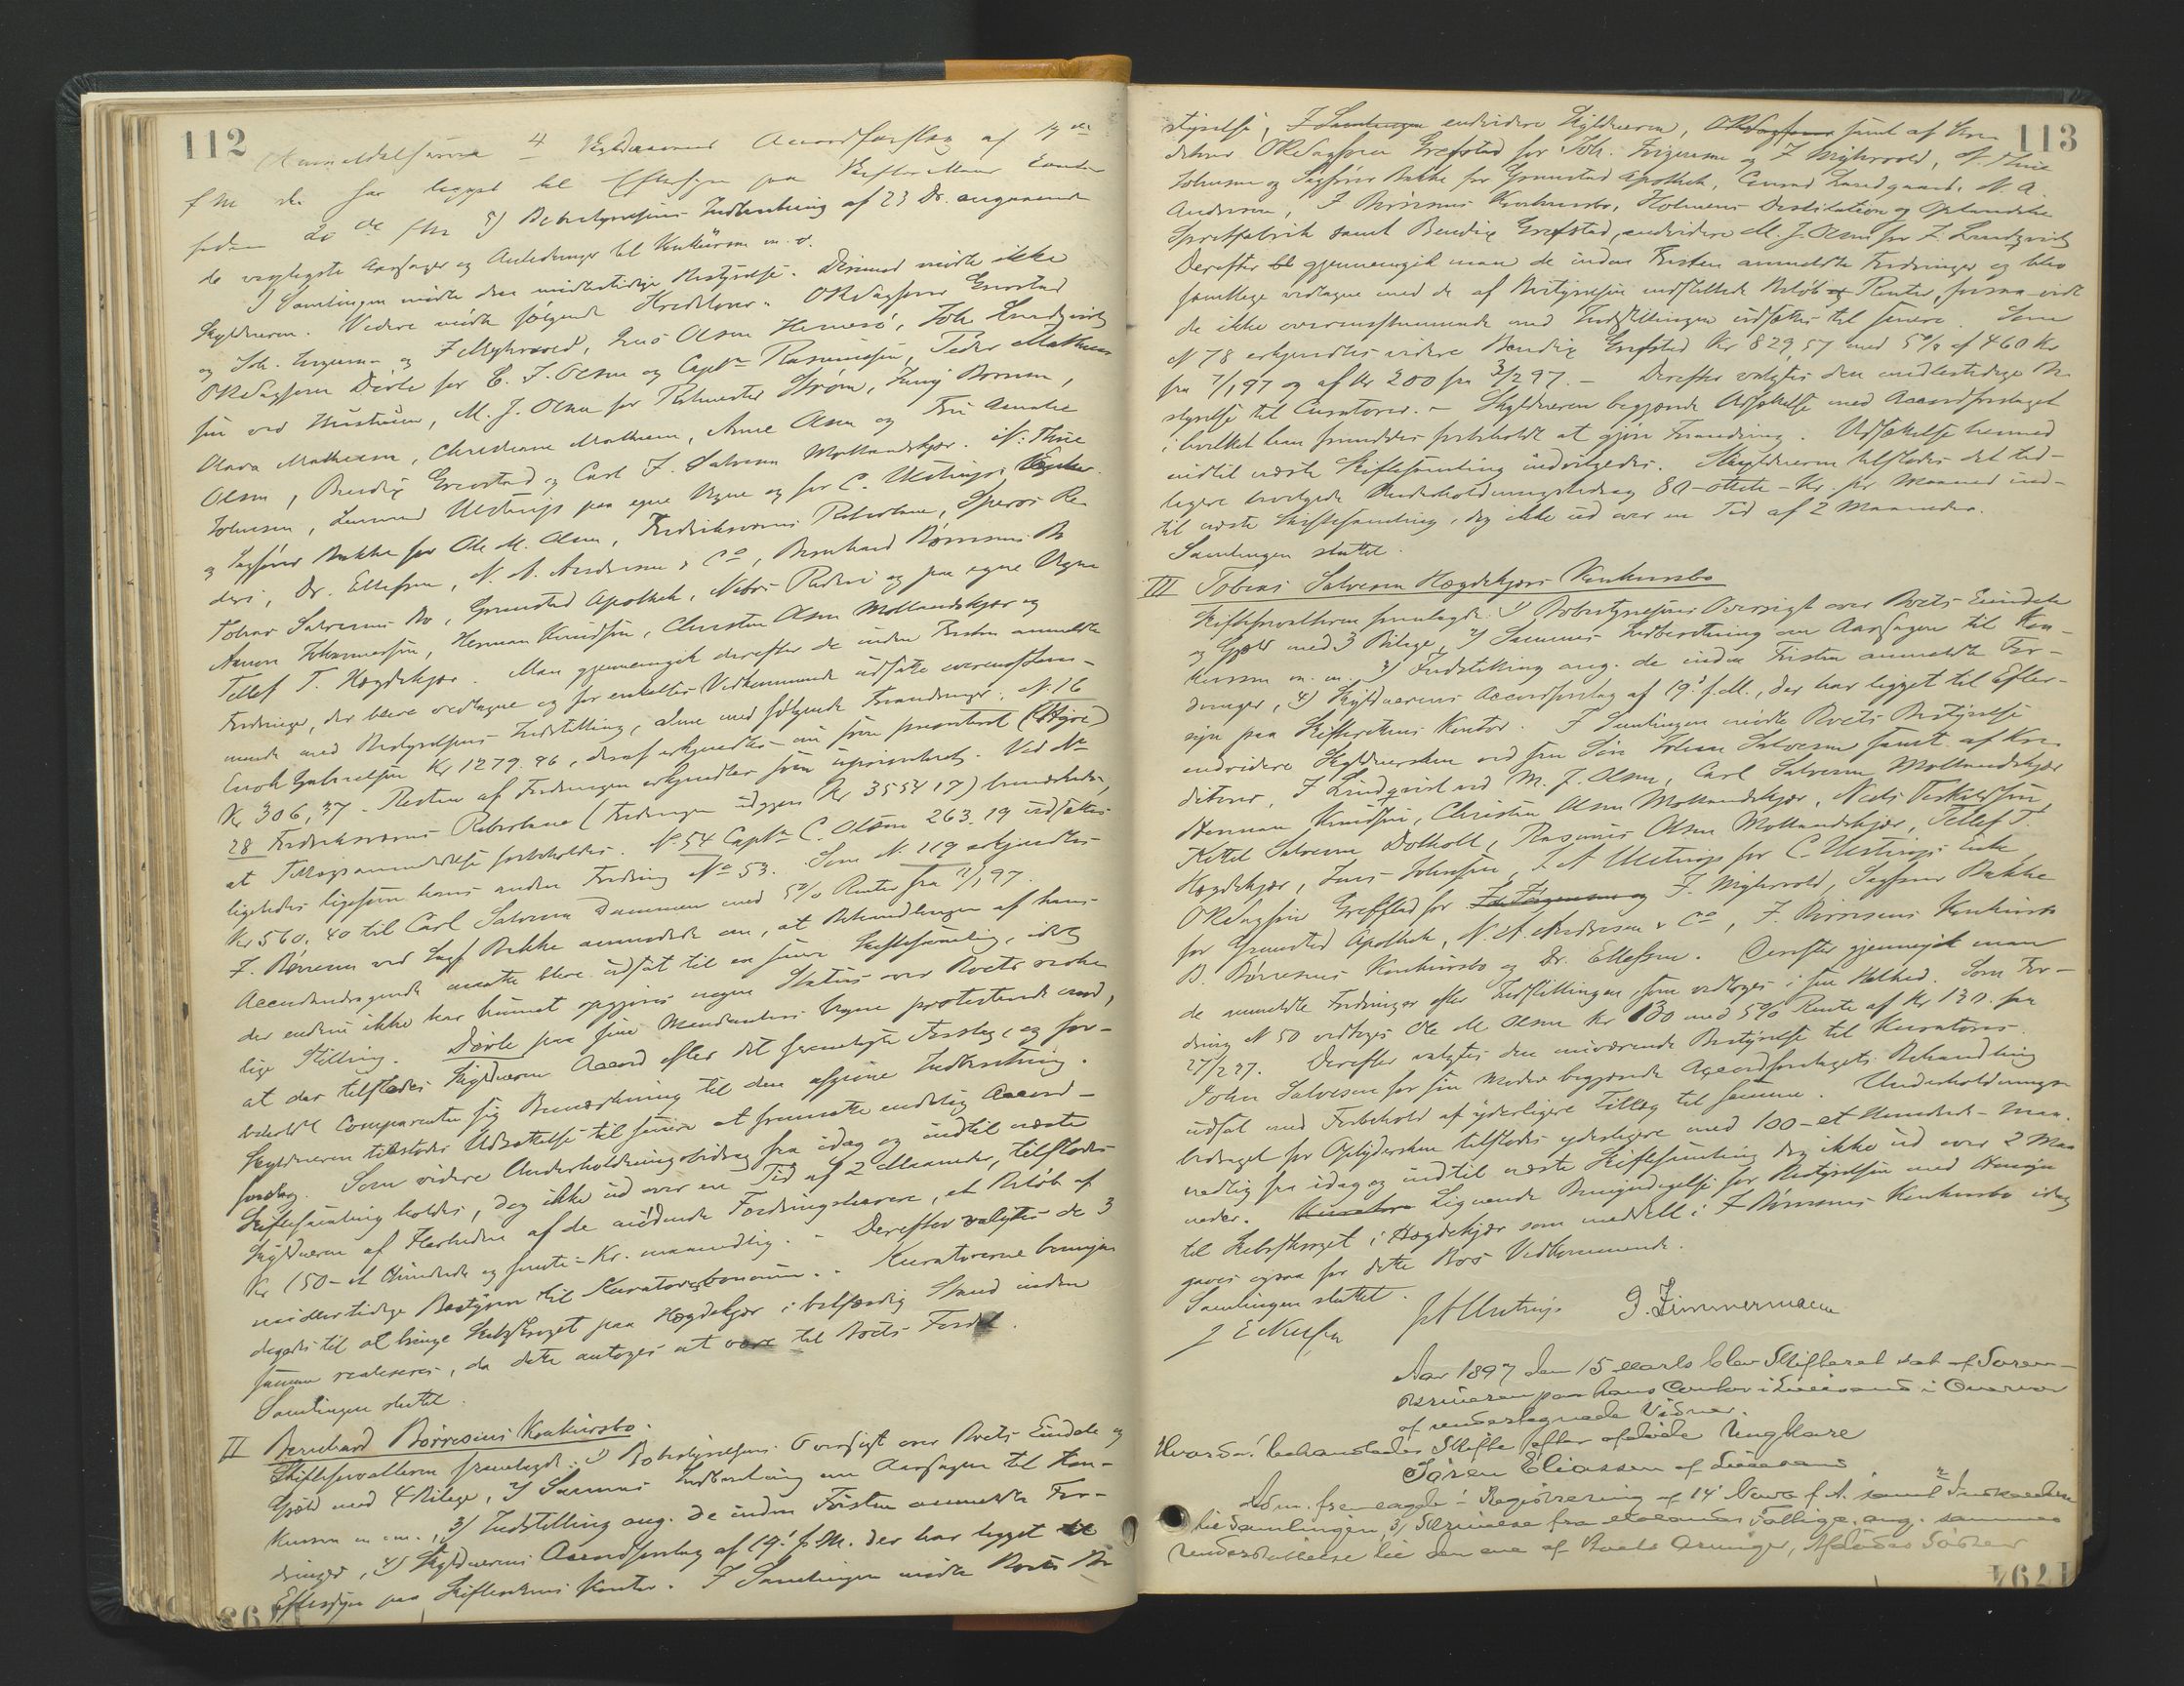 112
4 Skyldnerens Accordforslag af 19de
f M der har ligget til Eftersyn paa
siden 20de f M 5) Bobestyrelsens Indberetning af 23 Ds. angaaende
de vigtigste Aarsager og Anledninger til Konkursen m. v.
I Samlingen mødte den midlertidige Bestyrelse. Derimod mødte ikke
Skyldneren. Videre mødte følgende Kreditorer: ORSagfører Grefstad
og Joh. Jørgensen og F Myhrvold, Jens Olsen Hemesö, Joh. Lundqvist
ORSagføren Dörle for C. J. Olsen og Capt Rasmussen, Peder Mathie
sen ved Hustruen, M. J. Olsen for Ström, Bornum,
Olava Mathiesen, Christiane Mathiesen, Anne Olsen og Fru Amalie
Olsen, Bendix Grefstad og Carl F. Salvesen Mollandskjær. N. Thue
Johnsen, Ulstrup paa egne Vegne og for C. Ulstrups Enke
og Sagfører Bakke for Ole M. Olsen, Fredriksværns Reberbane, Speros Re
deri, Dr. Ellefsen, N. A. Andersen & Co, Bernhard Börresens Bo
Tobias Salvesens Bo, Grimstad Apothek, Rederi og paa egne Vegne
Aanon Johannesen, Herman Knudsen, Christen Olsen Mollandskjær og
Tellef T. Hægdekjær. Man gjennemgik derefter de inden Fristen anmeldte
Fordringer, der bleve vedtagne og for enkeltes Vedkommende udsatte overensstem-
mende med Bestyrelsens Indstilling, alene med følgende Forandringer: N. 16
Enok Gabrielsen Kr 1279.86, deraf erkjendtes nu som prioriteret (Hyre)
Kr 306,37. Resten af Fordringen erkjendtes som uprioriteret. Ved No
28 Fredriksværns Reberbane (Fordringen udgjør Kr 3554 19) bemærkedes,
at Tillægsanmeldelse forbeholdes. N. 54 Capt C. Olsen 263.19 udsættes
ligeledes ligesom hans anden Fordring No 53. Som N. 119 erkjendtes
Kr 560,40 til Carl Salvesen Dammen med 5% Renter fra 2/1 97.
F. Börresen ved Sagf Bakke anmodede om, at Behandlingen af hans
Accordandragende maatte blive udsat til en senere Skiftesamling, idet
der endnu ikke har kunnet opgjøres nogen Status over Boets virke
lige Stilling. Dörle paa sine Mandanters Vegne protesterede mod,
at der tilstedes Skyldneren Accord efter det fremlagte Forslag, og for-
beholdt Comparenten sig Bemærkning til den afgivne Indberetning.
Skyldneren tilstodes Udsættelse til senere at fremsætte endelig Accord-
forslag. Som videre Underholdningsbidrag fra idag og indtil næste
Skiftesamling holdes, dog ikke ud over en Tid af 2 Maaneder, tilstodes
Skyldneren af Flerheden af de mødende Fordringshavere, et Beløb af
Kr 150 - et Hundrede og femti - Kr. maanedlig. - Derefter valgtes de 3
midlertidige Bestyrere til Kuratores bonorum. Kuratorerne bemyn
digedes til at bringe Skibsskroget paa Hægdekjær i bedste Stand inden
samme realiseres, da dette antoges at være til Boets Fordel.
Samlingen sluttet.
II Bernhard Börresens Konkursbo.
Skifteforvalteren fremlagde: 1) Bobestyrelsens Oversigt over Boets Eiendele og
Gjæld med 4 Bilage, 2) Sammes Indberetning om Aarsagen til Kon-
kursen m. m., 3) Indstilling ang. de inden Fristen anmeldte For-
dringer, 4) Skyldnerens Accordforslag af 19' f. M. der har ligget til
Eftersyn paa Skifterettens Kontor. I Samlingen mødte Boets Be
113
styrelse, I Samlingen endvidere Skyldneren, ORSagfører samt af Kre
ditorer ORSagfører Grefstad for Joh. Jörgensen og F Myhrvold, N. Thue
Johnsen og Sagfører Bakke for Grimstad Apothek, Conrad Lundgaard, N. A.
Andersen, F Börresens Konkursbo, Holmens Destilation og Oplandske
Spritfabrik samt Bendix Grefstad, endvidere M. J. Olsen for F. Lundqvist
Derefter bl gjennemgik man de inden Fristen anmeldte Fordringer og blev
samtlige vedtagne med de af Bestyrelsen indstillede Beløb og Renter, forsaavidt
de ikke overensstemmende med Indstillingen udsattes til senere. Som
N 78 erkjendtes videre Bendix Grefstad Kr 829,57 med 5% af 460 Kr
fra 7/1 97 og af Kr 200 fra 3/2 97. - Derefter valgtes den midlertidige Be
styrelse til Curatorer. - Skyldneren begjærede Udsættelse med Accordforslaget
i hvilket han fremdeles forbeholdt at gjøre Forandring. Udsættelse hermed
indtil næste Skiftesamling indvilgedes. Skyldneren tilstodes det tid-
ligere bevilgede Underholdningsbidrag 80 - otteti - Kr. pr Maaned ind-
til næste Skiftesamling, dog ikke ud over en Tid af 2 Maaneder.
Samlingen sluttet.
III Tobias Salvesen Hægdekjærs Konkursbo
Skifteforvalteren fremlagde: 1) Bobestyrelsens Oversigt over Boets Eiendele
og Gjæld med 3 Bilage, 2) Sammes Indberetning om Aarsagen til Kon-
kursen m. m., 3) Indstilling ang. de inden Fristen anmeldte For-
dringer, 4) Skyldnerens Accordforslag af 19' f. M., der har ligget til Efter-
syn paa Skifterettens Kontor. I Samlingen mødte Boets Bestyrelse
endvidere Skyldnersken ved sin Søn Johan Salvesen samt af Kre
ditorer, F Lindqvist ved M. J. Olsen, Carl Salvesen Mollandskjær
Herman Knudsen, Christen Olsen Mollandskjær, Niels Terkildsen,
Kittel Salvesen Dolholt, Rasmus Olsen Mollandskjær, Tellef T.
Hægdekjær, Jens Johnsen, J. A Ulstrup for C. Ulstrups Enke
ORSagfører Grefstad for Joh Jörgensen og F. Myhrvold, Sagfører Bakke
for Grimstad Apothek, N. A. Andersen & Co, F. Börresens Konkursbo
B. Börresens Konkursbo og Dr. Ellefsen. Derefter gjennemgik man
de anmeldte Fordringer efter Indstillingen, som vedtoges i sin Helhed. Som For-
dring N 50 vedtoges Ole M Olsen Kr 130 med 5% Rente af Kr 130. fra
27/2 97. Derefter valgtes den nuværende Bestyrelse til Kuratorer.
John Salvesen for sin Moder begjærede Accordforslagets Behandling
udsat med Forbehold af yderligere Tillæg til samme. Underholdnings-
bidraget for Opbydersken tilstodes yderligere med 100 - et Hundrede - maa
nedlig fra idag og indtil næste Skiftesamling dog ikke ud over 2 Maa
neder. Kuratore Lignende Bemyndigelse for Bestyrelsen med Hensyn
til Skibsskroget i Hægdekjær som meddelt i F Börresens Konkursbo idag
gaves ogsaa for dette Bos Vedkommende.
Samlingen sluttet.
J A Ulstrup G. Zimmermann
Aar 1897 den 15 Marts blev Skifteret sat af Soren-
skriveren paa hans Contor i Lillesand i Overvær
af undertegnede Vidner.
Hvorda: behandledes Skifte efter afdøde Ungkare
Sören Eliassen af Lillesand
Adm. fremlagde 1 Registrering af 14' Novb f. A. samt 2 Indkaldelse
til Samlingen, 3) Skrivelse fra Fattigv. ang. sammes
Understøttelse til den ene af Boets Arvinger, Afdødes Søster